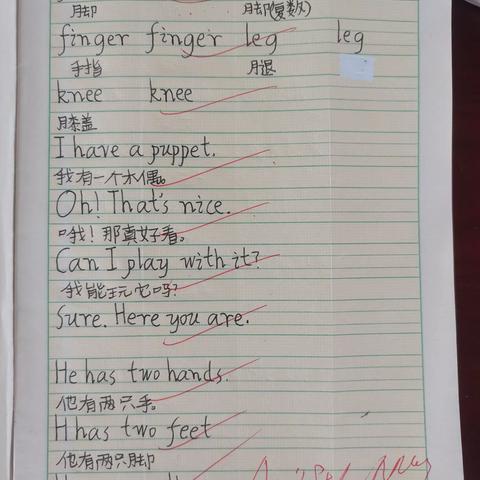 脚 脚(复数)
finger finger leg leg
手指 腿
knee knee
膝盖
I have a puppet.
我有一个木偶。
Oh! That's nice.
哦! 那真好看。
Can I play with it?
我能玩它吗?
Sure. Here you are.
He has two hands.
他有两只手。
H has two feet
他有两只脚